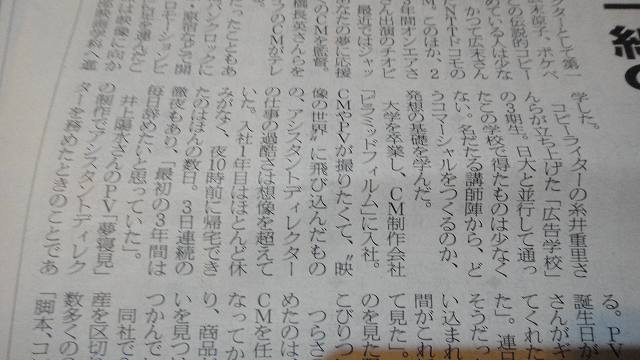 クターとして第一
末涼子、ポケベ
この伝説的コピー
めている人は少な
かつて広末さん
NTTドコモの
M。このほか、2
年間オンエアさ
最近ではジャッ
あなたの夢に応援
のCMを監督。
橋長英さんらを
つのCMがテレ
ったこともあ
パンクロックに
・原宿などで開
ロモーションビ
に足を運んだこ
は映像に向か
放送学科へ進
学した。
コピーライターの糸井重里さ
んらが立ち上げた「広告学校」
の3期生。日大と並行して通っ
たこの学校で得たものは少なく
ない。名だたる講師陣から、ど
うコマーシャルをつくるのか、
発想の基礎を学んだ。
大学を卒業し、CM制作会社
「ピラミッドフィルム」に入社。
CMやPVが撮りたくて、〝映
像の世界〟に飛び込んだもの
の、アシスタントディレクター
の仕事の過酷さは想像を超えて
いた。入社1年目はほとんど休
みがなく、夜10時前に帰宅でき
たのはほんの数日。3日連続の
徹夜もあり、「最初の3年間は
毎日辞めたいと思っていた」。
井上陽水さんのPV「夢寝見」
の制作でアシスタントディレク
ターを務めたときのことであ
る。PV
誕生日が
さんがギ
てくれた
た」。連日
そうだっ
い込まれ
間がこれ
て見た」。
のを見た
こびりつ
つらさ
めたのは
CMを任
なってか
り、商品
いを見つ
つかんで
同社で
産を区切
数多くの
「脚本、コ